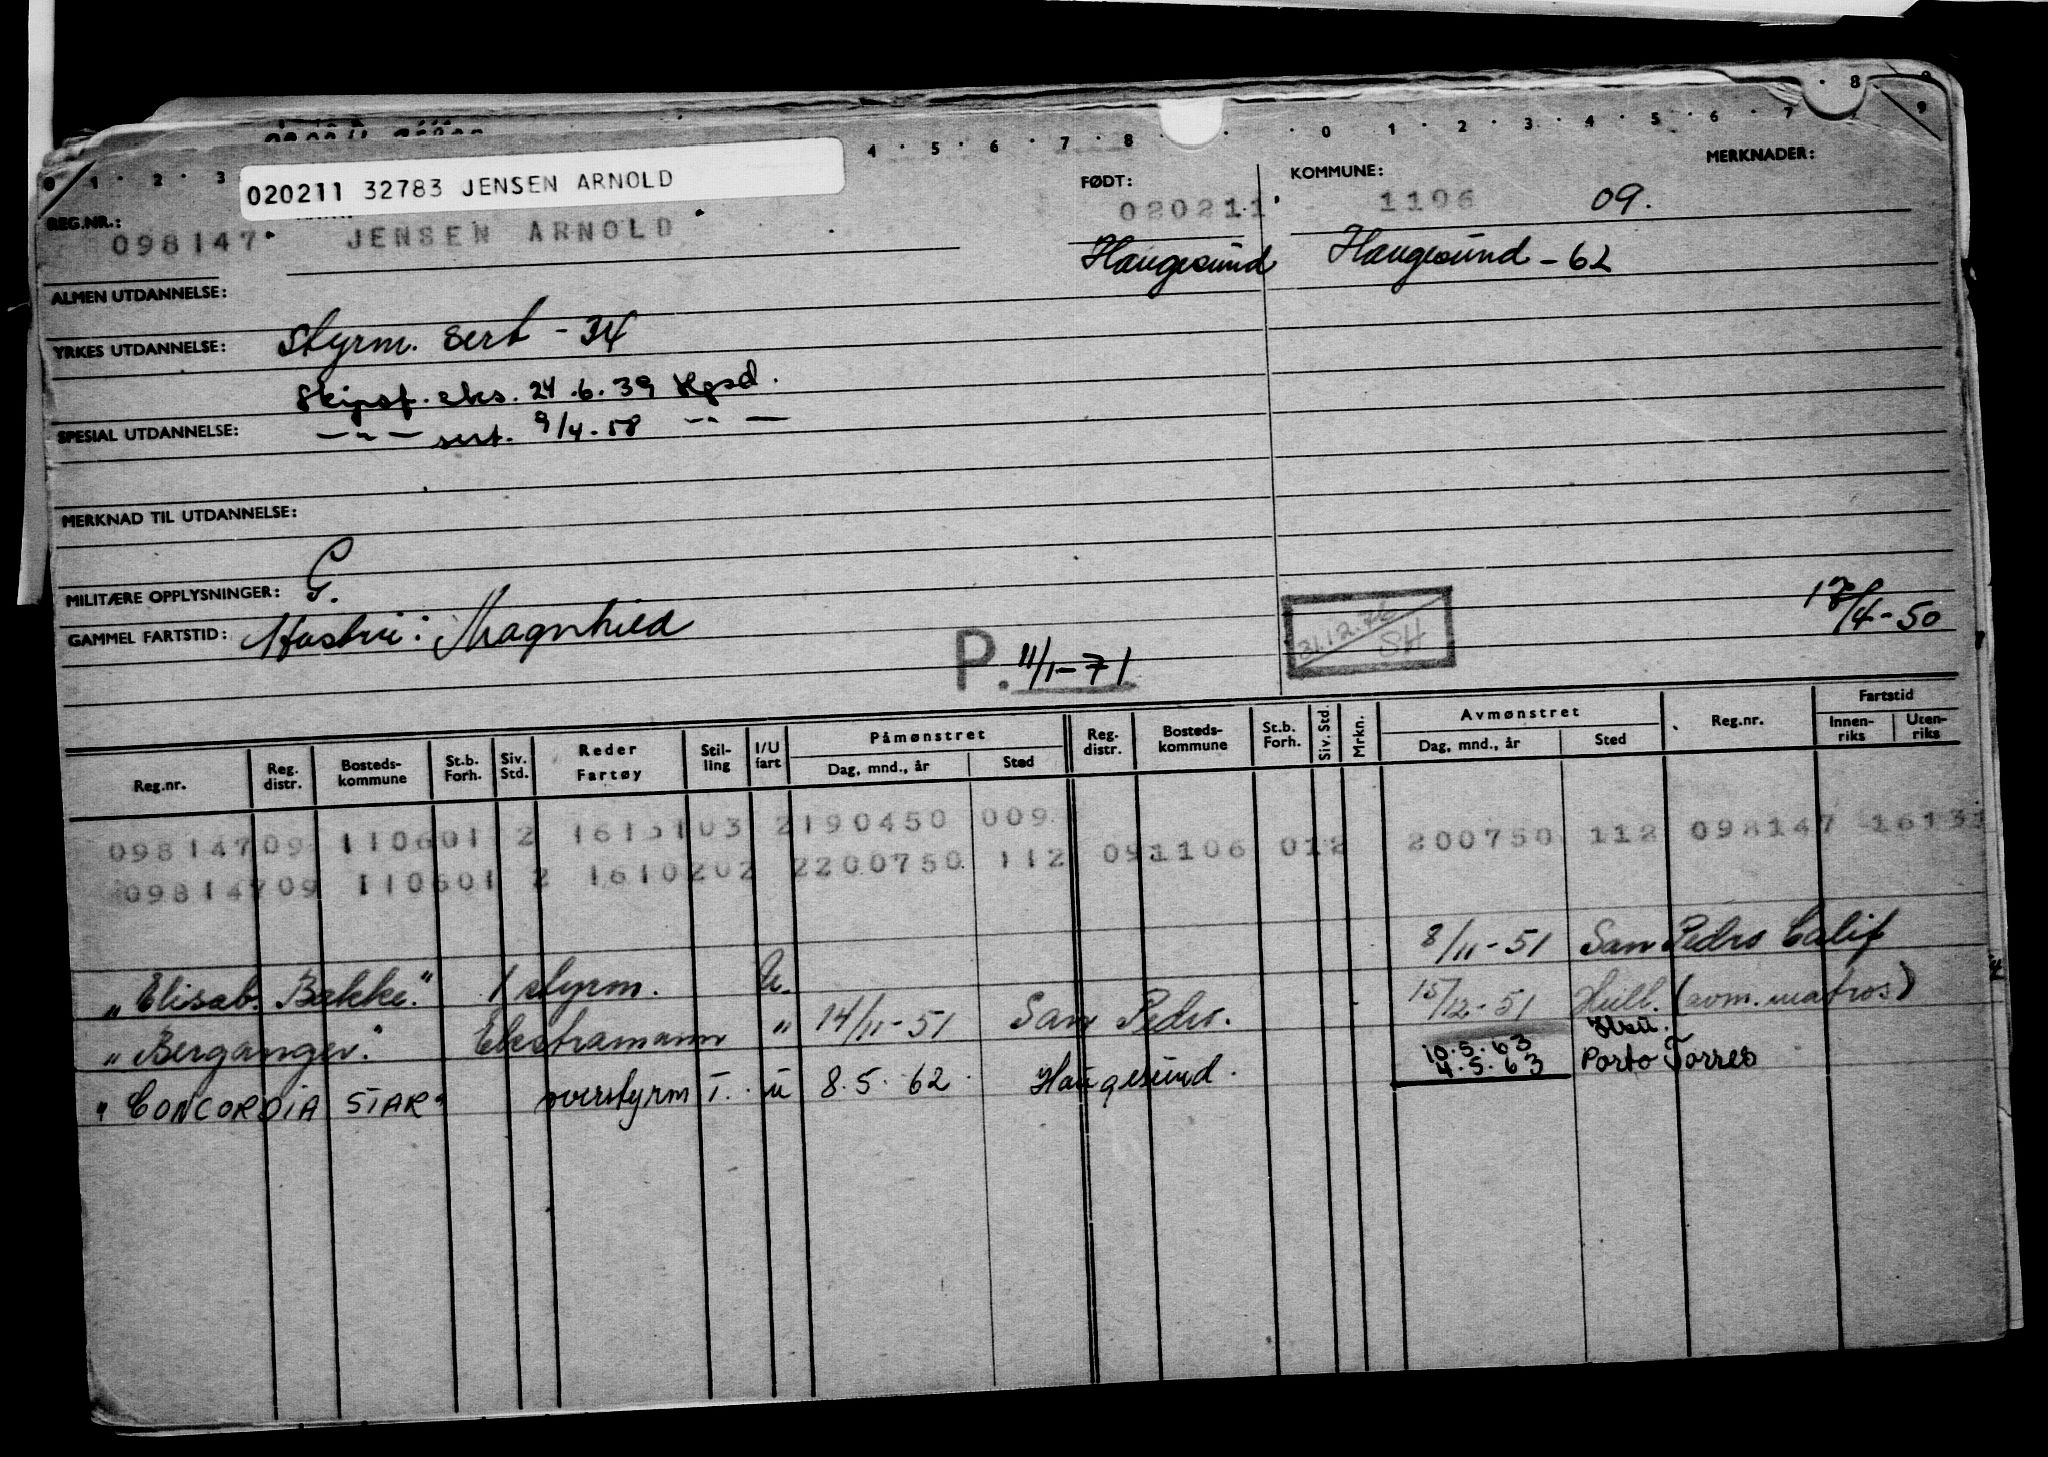 0 1 2 3 4 5 6 7 8 0 1 2 3 4 5 6 7 8 9
020211 32783 JENSEN ARNOLD
REG.NR.: FØDT: KOMMUNE: MERKNADER:
098147 JENSEN ARNOLD 020211 1106 09.
Haugesund Haugesund - 62
ALMEN UTDANNELSE:
YRKES UTDANNELSE: Styrm. sert - 34
Skipsf. eks. 24.6.39 Hgsd.
SPESIAL UTDANNELSE: — " — sert. 9/4-58 — " —
MERKNAD TIL UTDANNELSE:
MILITÆRE OPPLYSNINGER: G.
GAMMEL FARTSTID: Hustru: Magnhild
P. 11/1-71
31.12.76 SH
/4-50
Reg.nr. Reg. distr. Bosteds-kommune St.b. Forh. Siv. Std. Reder Fartøy Stil-ling I/U fart Påmønstret Dag, mnd., år Sted Reg. distr. Bosteds-kommune St.b. Forh. Siv. Std. Mrkn. Avmønstret Dag, mnd., år Sted Reg.nr. Fartstid Innen-riks Uten-riks
098147 09 1106 01 2 1615103 2 190450 009 09 1106 01 2 200750 112 098147 16131
098147 09 1106 01 2 1610202 2 200750 112
"Elisab. Bakke." 1 styrm. U. 8/11-51 San Pedro Calif
"Berganger." Ekstramann " 14/11-51 San Pedro. 15/12-51 Hull. (avm. matros)
"CONCORDIA STAR" overstyrm I. u 8.5.62 Haugesund.
10.5.63
4.5.63 Porto Torres